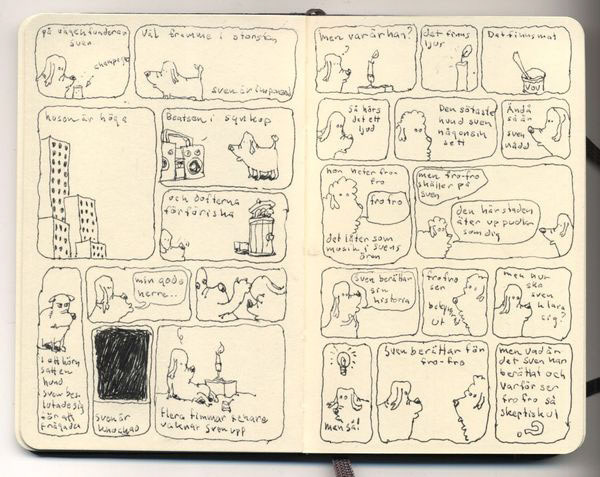 på vägen funderar
Sven.
champis?
Väl framme i storstan
Sven är imponerad
husen är höga
Beatsen i synkop
och dofterna
förföriska
I ett hörn
satt en
hund
Sven bes-
lutade sig
för att
fråga den
min gode
herre...
Sven är
knockad
flera timmar senare
vaknar Sven upp
men var är han?
det finns
ljus
Det finns mat
VOV!
så hörs
det ett
ljud
Den sötaste
hund Sven
någonsin
sett
Ändå
så är
Sven
rädd
hon heter fro-
fro
fro fro
det låter som
musik i Svens
öron
men fro-fro
skäller på
Sven
den här staden
äter up pudlar
som dig
Sven berättar
sin
historia
fro fro
ser
bekym
ut
men hur
ska
Sven
klara
sig?
men så!
Sven berättar för
fro-fro
men vad är
det Sven har
berättat och
varför ser
fro fro så
skeptisk ut
?